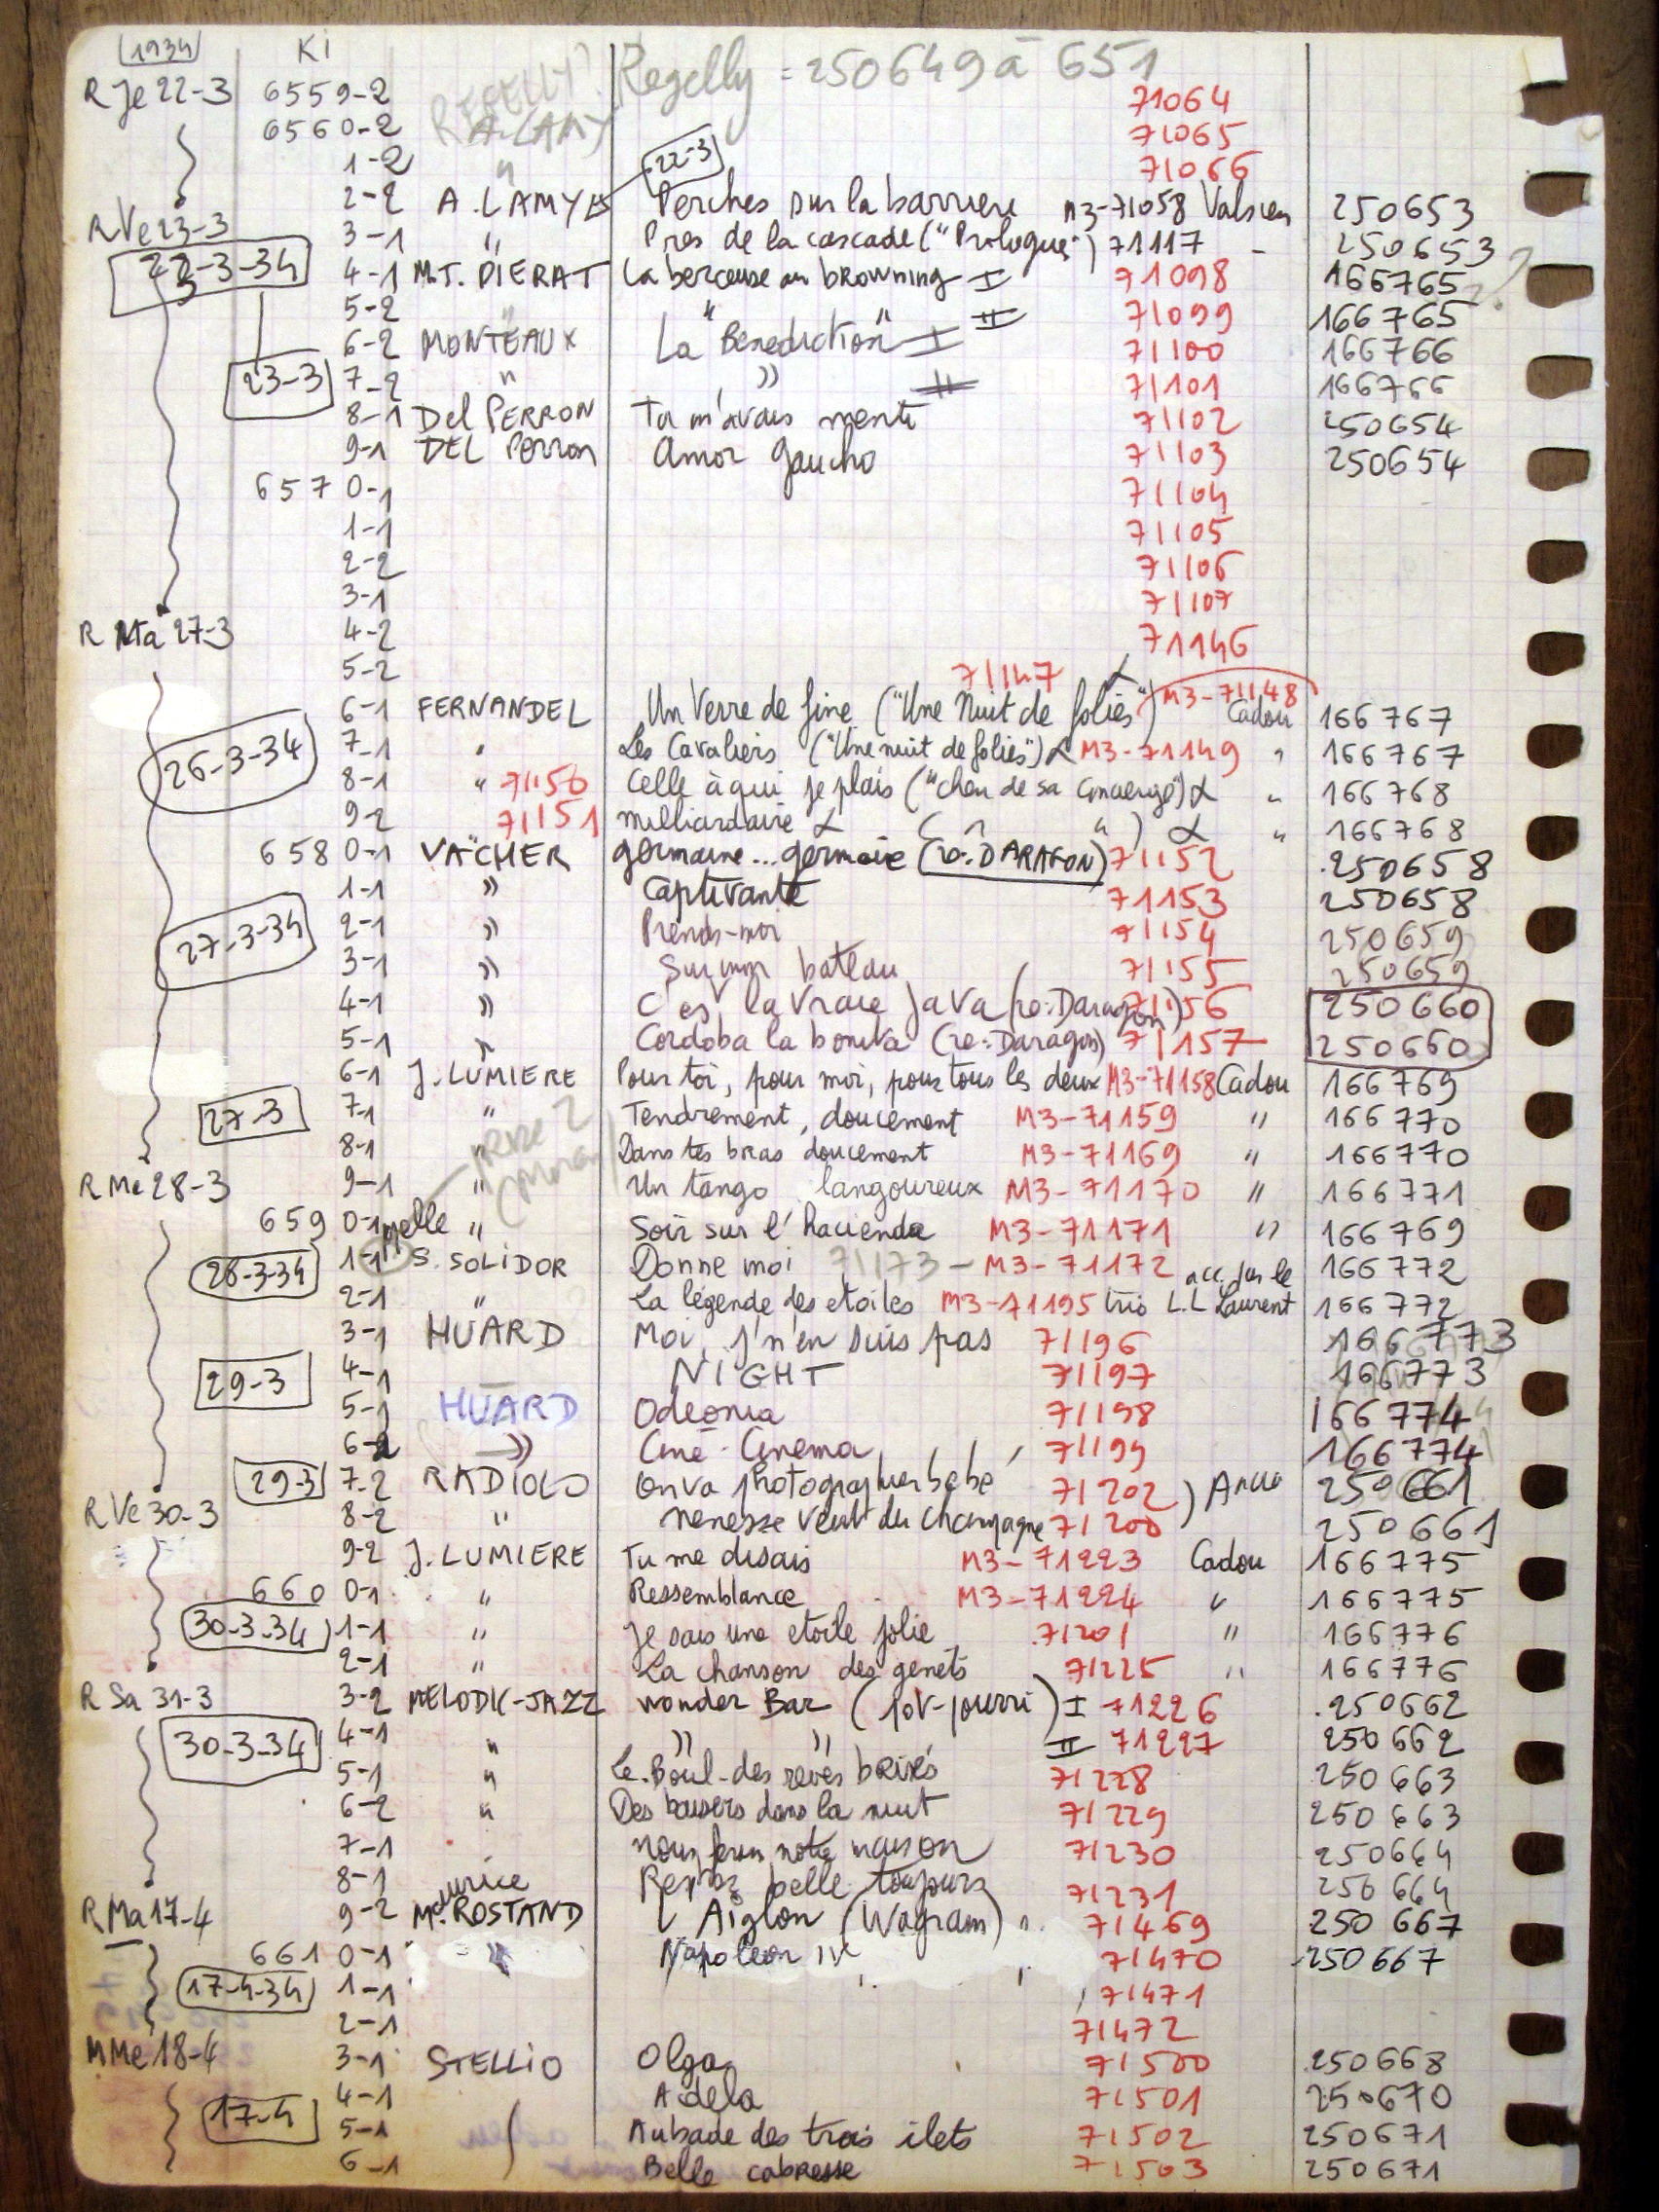 1934 Ki Regelly = 250649 à 651
R Je 22-3 6559-2 REGELLY? 71064
6560-2 A. LAMY 71065
1-2 " 22-3 71066
2-2 A. LAMY Perches sur la barriere M3-71058 Valsien 250653
R Ve 23-3 3-1 " Pres de la cascade ("Prologue") 71117 - 250653
22-3-34 4-1 M.T. PIERAT La berceuse au browning I 71098 166765 ?
5-2 " II 71099 166765
6-2 MONTEAUX La "Benediction" I 71100 166766
23-3 7-2 " " II 71101 166766
8-1 Del PERRON Tu m'avais menti 71102 250654
9-1 DEL Perron Amor gaucho 71103 250654
657 0-1 71104
1-1 71105
2-2 71106
3-1 71107
R Ma 27-3 4-2 71146
5-2 71147
6-1 FERNANDEL Un Verre de fine ("Une Nuit de folies") M3-71148 Cadou 166767
26-3-34 7-1 " Les Cavaliers ("Une nuit de folies") M3-71149 " 166767
8-1 " 71150 Celle à qui je plais ("cheri de sa concierge") " 166768
9-2 71151 milliardaire ( " " ) " 166768
658 0-1 VACHER germaine... germaine (ro: DARAGON) 71152 250658
1-1 " Captivante 71153 250658
27-3-34 2-1 " Prends-moi 71154 250659
3-1 " Sur mon bateau 71155 250659
4-1 " C'est la vraie java (ro: Daragon) 71156 250660
5-1 " Cordoba la bonita (ro: Daragon) 71157 250660
6-1 J. LUMIERE Pour toi, pour moi, pour tous les deux M3-71158 Cadou 166769
27-3 7-1 " Tendrement, doucement M3-71159 " 166770
8-1 " Dans tes bras doucement M3-71169 " 166770
R Me 28-3 9-1 " Un tango langoureux M3-71170 " 166771
659 0-1 " Soir sur l'hacienda M3-71171 " 166769
28-3-34 1-1 Melle S. SOLIDOR Donne moi 71173 - M3-71172 acc. par le 166772
2-1 " La légende des etoiles M3-71195 trio L.L Laurent 166772
3-1 HUARD Moi, j'n'en suis pas 71196 166773
29-3 4-1 NIGHT 71197 166773
5-1 HUARD Odeonia 71198 166774
6-2 " Ciné-Cinema 71199 166774
29-3 7-2 RADIOLO On va photographier bébé 71202 250661
R Ve 30-3 8-2 " Nenesse veut du champagne 71200 250661
9-2 J. LUMIERE Tu me disais M3-71223 Cadou 166775
660 0-1 " Ressemblance M3-71224 " 166775
30-3-34 1-1 " Je sais une etoile jolie 71201 " 166776
2-1 " La chanson des genets 71225 " 166776
R Sa 31-3 3-2 MELODIC-JAZZ Wonder Bar (pot-pourri) I 71226 250662
30-3-34 4-1 " " " II 71227 250662
5-1 " Le Boul. des reves brisés 71228 250663
6-2 " Des baisers dans la nuit 71229 250663
7-1 nous ferons notre maison 71230 250664
8-1 Restez belle toujours 71231 250664
R Ma 17-4 9-2 Maurice ROSTAND L'Aiglon (Wagram) 71469 250667
661 0-1 " Napoleon IV 71470 250667
17-4-34 1-1 71471
2-1 71472
M Me 18-4 3-1 STELLIO Olga 71500 250668
4-1 Adela 71501 250670
17-4 5-1 Aubade des trois ilets 71502 250671
6-1 Belle cabresse 71503 250671